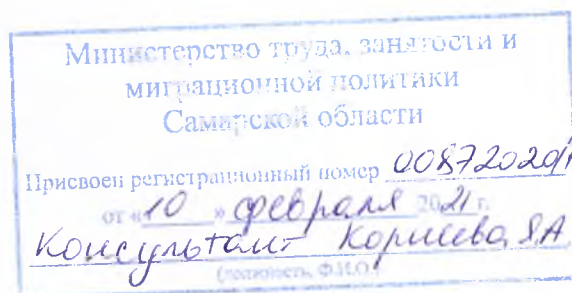 Министерство труда, занятости и
миграционной политики
Самарской области
Присвоен регистрационный номер 00872020/1
от «10» февраля 2021 г.
Консультант
(должность, Ф.И.О.)